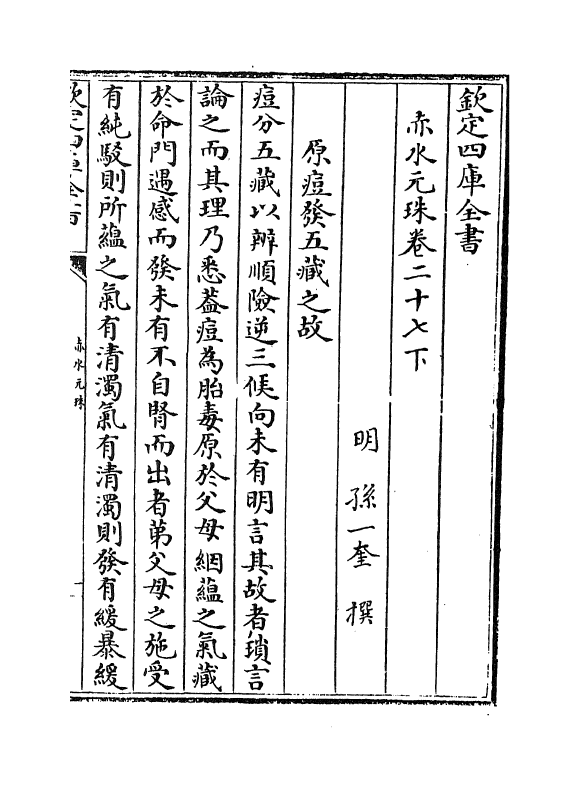 欽定四庫全書
赤水元珠卷二十七下
明 孫一奎 撰
原痘發五藏之故
痘分五藏以辨順險逆三候向未有明言其故者瑣言
論之而其理乃悉葢痘為胎毒原於父母絪蘊之氣藏
於命門遇感而發未有不自腎而出者苐父母之施受
有純駁則所蘊之氣有清濁氣有清濁則發有緩暴緩
欽定四庫全書
赤水元珠
一